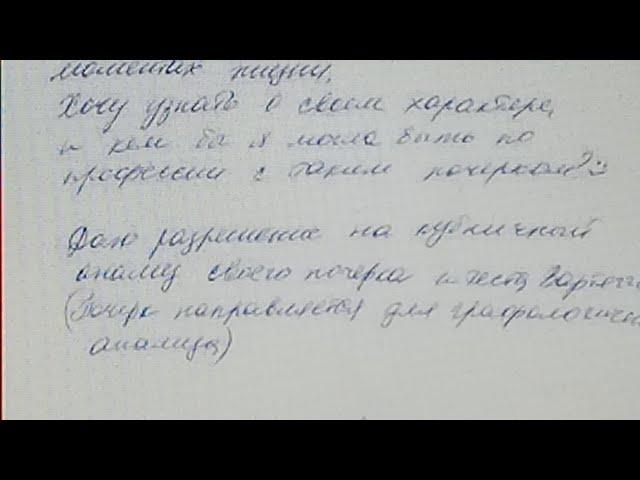 моментах жизни.
Хочу узнать о своем характере,
и кем бы я могла быть по
профессии с таким почерком? :)
Даю разрешение на публичный
анализ своего почерка и теста
(Почерк направляется для графологиче
анализа)